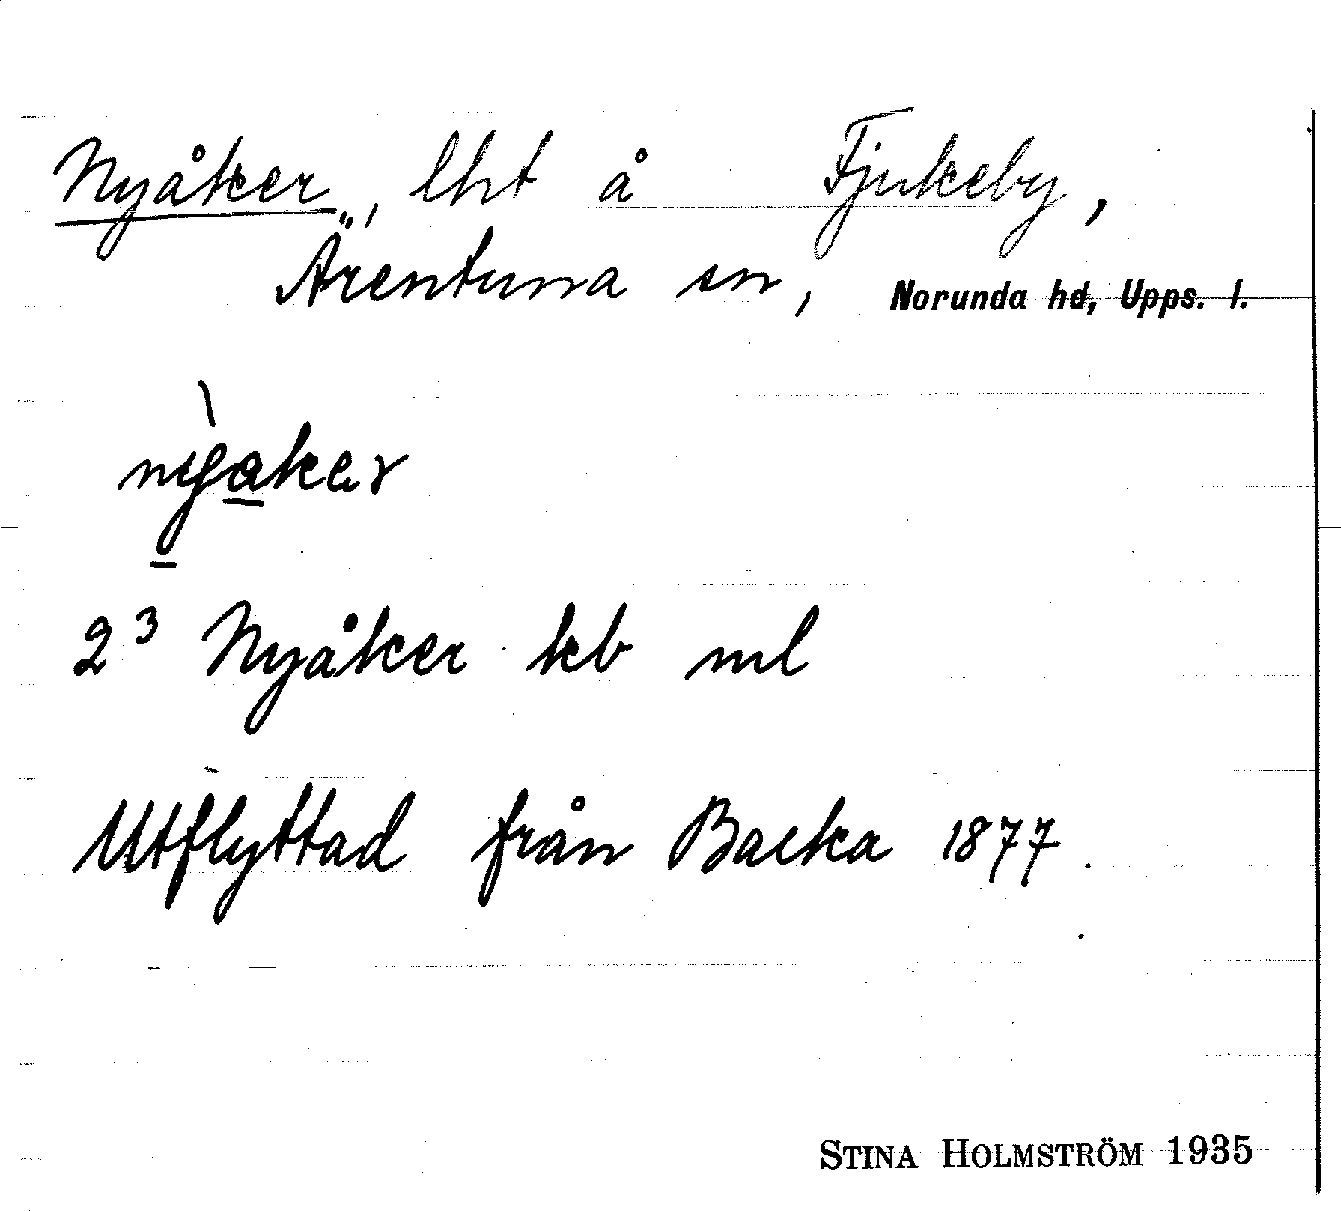 Nyåker, lht å Fjukeby,
Ärentuna sn, Norunda hd, Upps. l.
nỳakər
2³ Nyåker kb ml
Utflyttad från Backa 1877.
STINA HOLMSTRÖM 1935